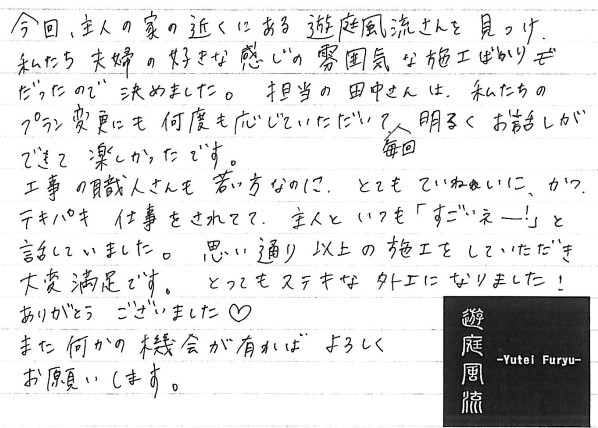 今回、主人の家の近くにある 遊庭風流さんを 見つけ、
私たち 夫婦の 好きな 感じの 雰囲気 な 施工ばかり
だったので 決めました。 担当の 田中さんは、私たちの
プラン 変更にも 何度も 応じていただいて、毎回 明るく お話しが
できて 楽しかったです。
工事の職人さんも 若い方なのに、とても ていねいに、かつ、
テキパキ 仕事をされてて、主人と いつも「すごいネー!」と
話していました。 思い通り 以上の 施工をしていただき
大変 満足です。 とっても ステキな 外工に なりました!
ありがとう ございました♡
また 何かの 機会が 有れば よろしく
お願いします。
遊庭風流
-Yutei Furyu-